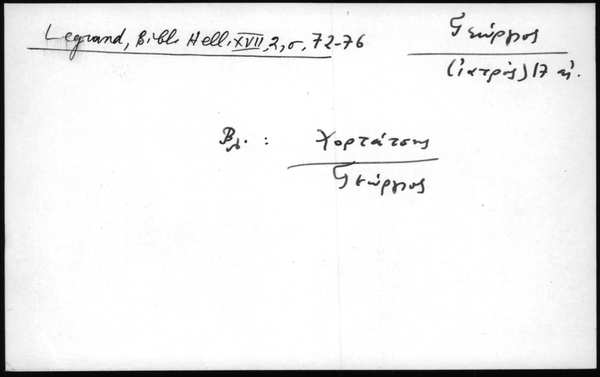 Legrand, Bibl. Hell. XVII, 2, σ. 72-76
Γεώργιος
(ἰατρός) 17 αἰ.
Βλ. : Χορτάτσης
Γεώργιος